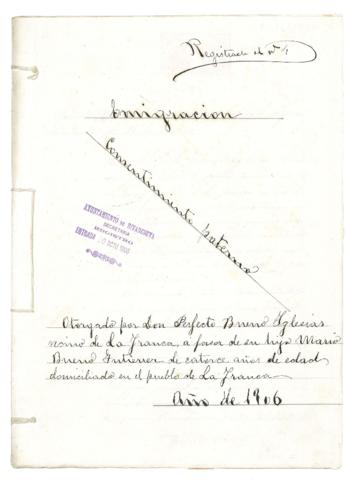 Registrado al nº 4
Emigracion
Consentimiento paterno
AYUNTAMIENTO DE RIVADEDEVA
SECRETARIA
REGISTRO
ENTRADA 1906
Otorgado por Don Perfecto Bueno Iglesias
vecino de La Franca, a favor de su hijo Mario
Bueno Gutierrez de catorce años de edad
domiciliado en el pueblo de La Franca
Año de 1906